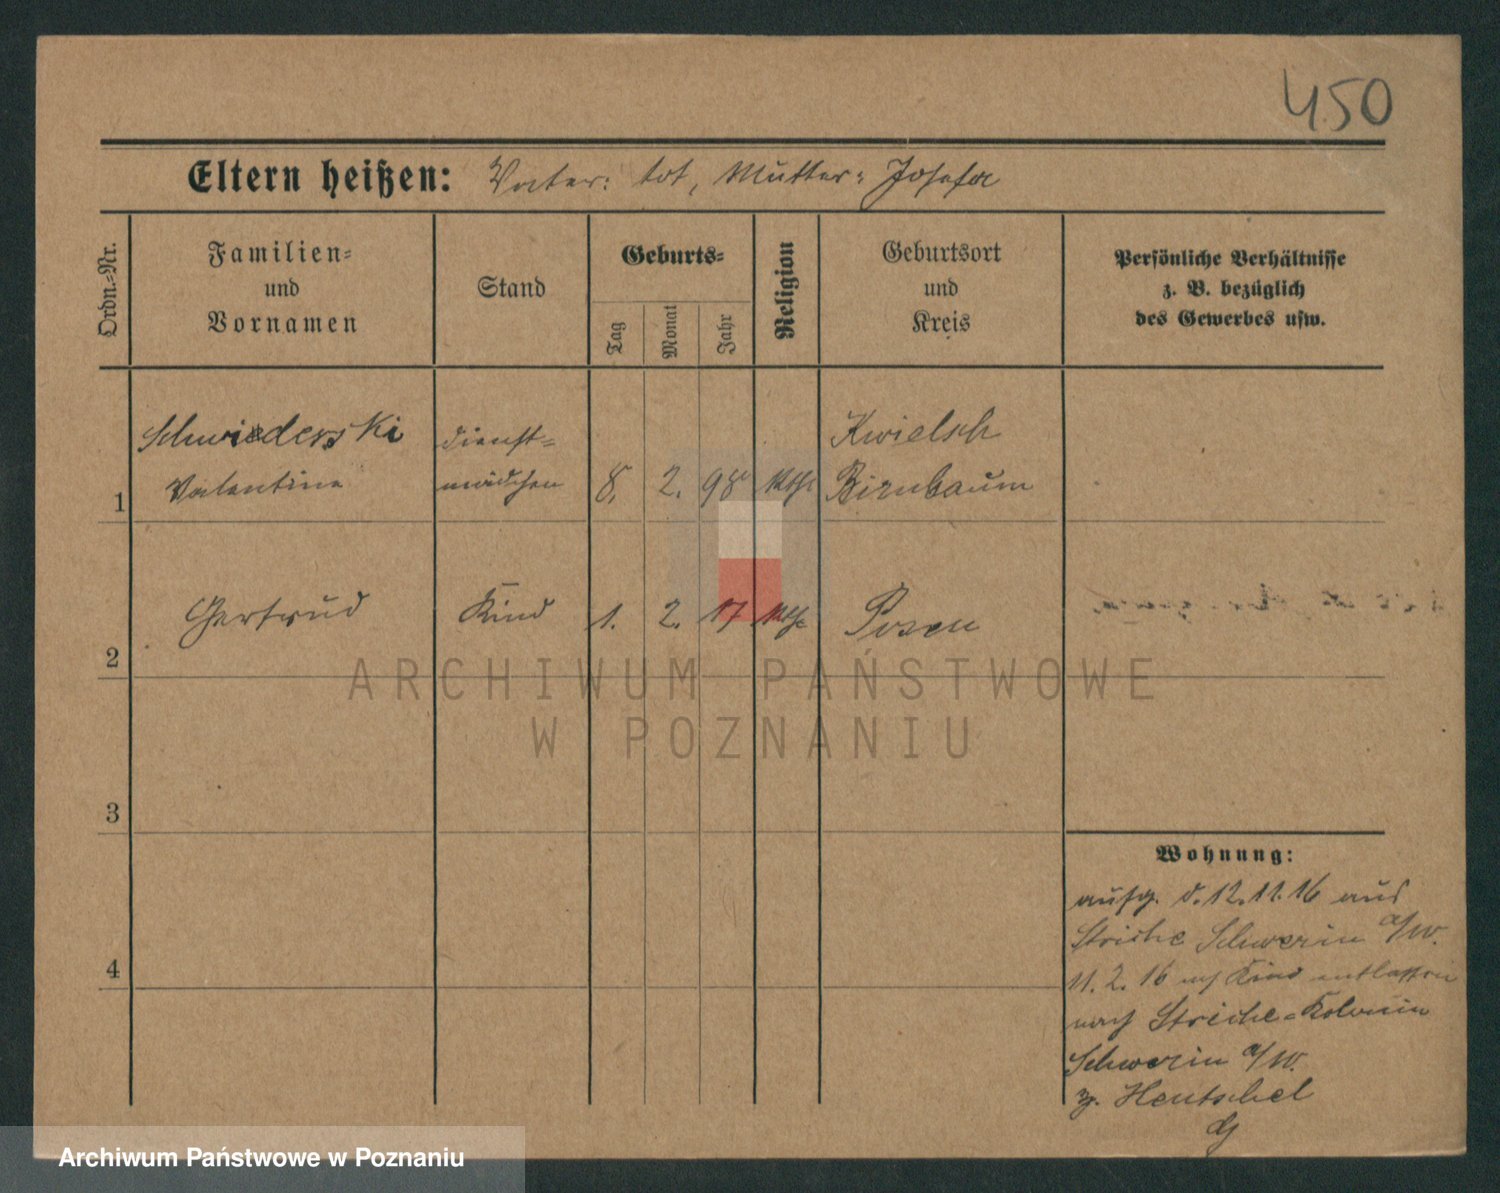 450
Eltern heißen: Vater: tot, Mutter: Josefa
Ordn.-Nr.
Familien- und Vornamen
Stand
Geburts-
Tag
Monat
Jahr
Religion
Geburtsort und Kreis
Persönliche Verhältnisse
z. B. bezüglich
des Gewerbes usw.
Schwiederski Dienst- Kwielsch
1 Valentine mädchen 8. 2. 98 kth. Birnbaum
2 Gertrud Kind 1. 2. 17 kth. Posen
3
4
Wohnung:
aufg. d. 12.11.16 aus
Striche Schwerin a/W.
11. 2. 16 mit Kind entlassen
nach Striche-Kolonie
Schwerin a/W.
z. Hentschel
ARCHIWUM PAŃSTWOWE
W POZNANIU
Archiwum Państwowe w Poznaniu